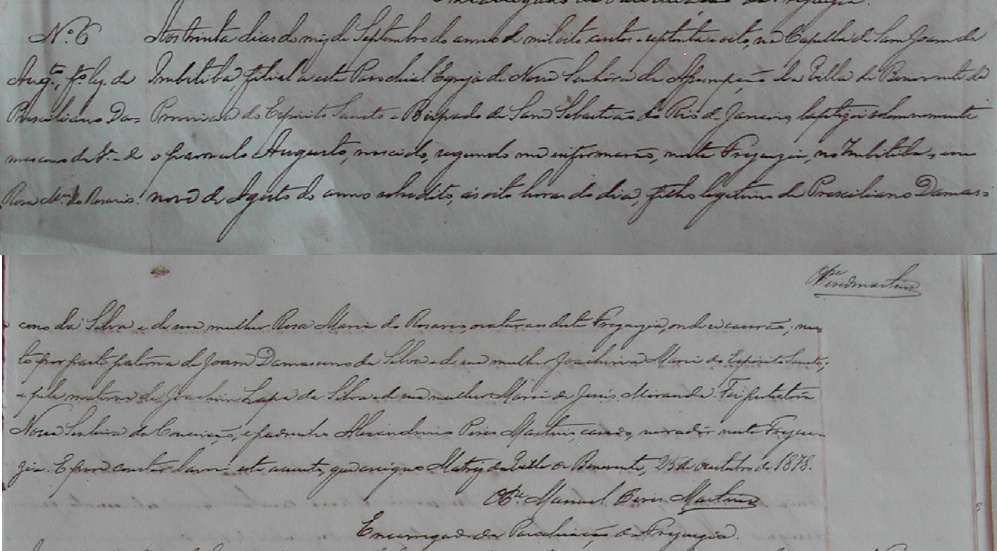 Encarregado da Parochiação da Freguezia.
Nº 6 Aos trinta dias do mez de Septembro do anno de mil oito centos e septenta e oito, na Capella de Sam Joam de
Augto, fº lg. de Imbitiba, filial a esta Parochial Egreja de Nossa Senhora da Assumpção da Villa de Benevente da
Presciliano Da= Provincia do Espirito Sancto e Bispado de Sam Sebastião do Rio de Janeiro, baptizei solemnemente
masceno da Sª e de o parvulo Augusto, nascido, segundo me informarão, nesta Freguezia, no Imbitiba, em
Rosa Mª do Rosario. nove de Agosto do anno sobredito, ás oito horas do dia, filho legitimo de Presciliano Damas=
Pe Peres Martins
ceno da Silva e de sua mulher Rosa Maria do Rosario, naturaes desta Freguezia, onde se casarão, ne=
to por parte paterna de Joam Damasceno da Silva e de sua mulher Joachina Maria do Espirito Sancto,
e pela materna de Joachim Lapa da Silva e de sua mulher Maria de Jesus Miranda. Foi protectora
Nossa Senhora da Conceição, e padrinho Alexandrino Pires Martins, casado, morador nesta Fregue=
zia. E para constar lavrei este assento, que assigno. Matriz da Villa de Benevente, 25 de outubro de 1878.
O Pe Manuel Peres Martins
Encarregado da Parochiação da Freguezia.